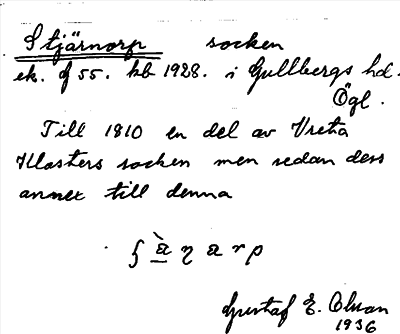 Stjärnorp socken
ek. f 55. hb 1928. i Gullbergs hd.
Ögl.
Till 1810 en del av Vreta
Klosters socken men sedan dess
annex till denna
Gustaf E. Olson
1936